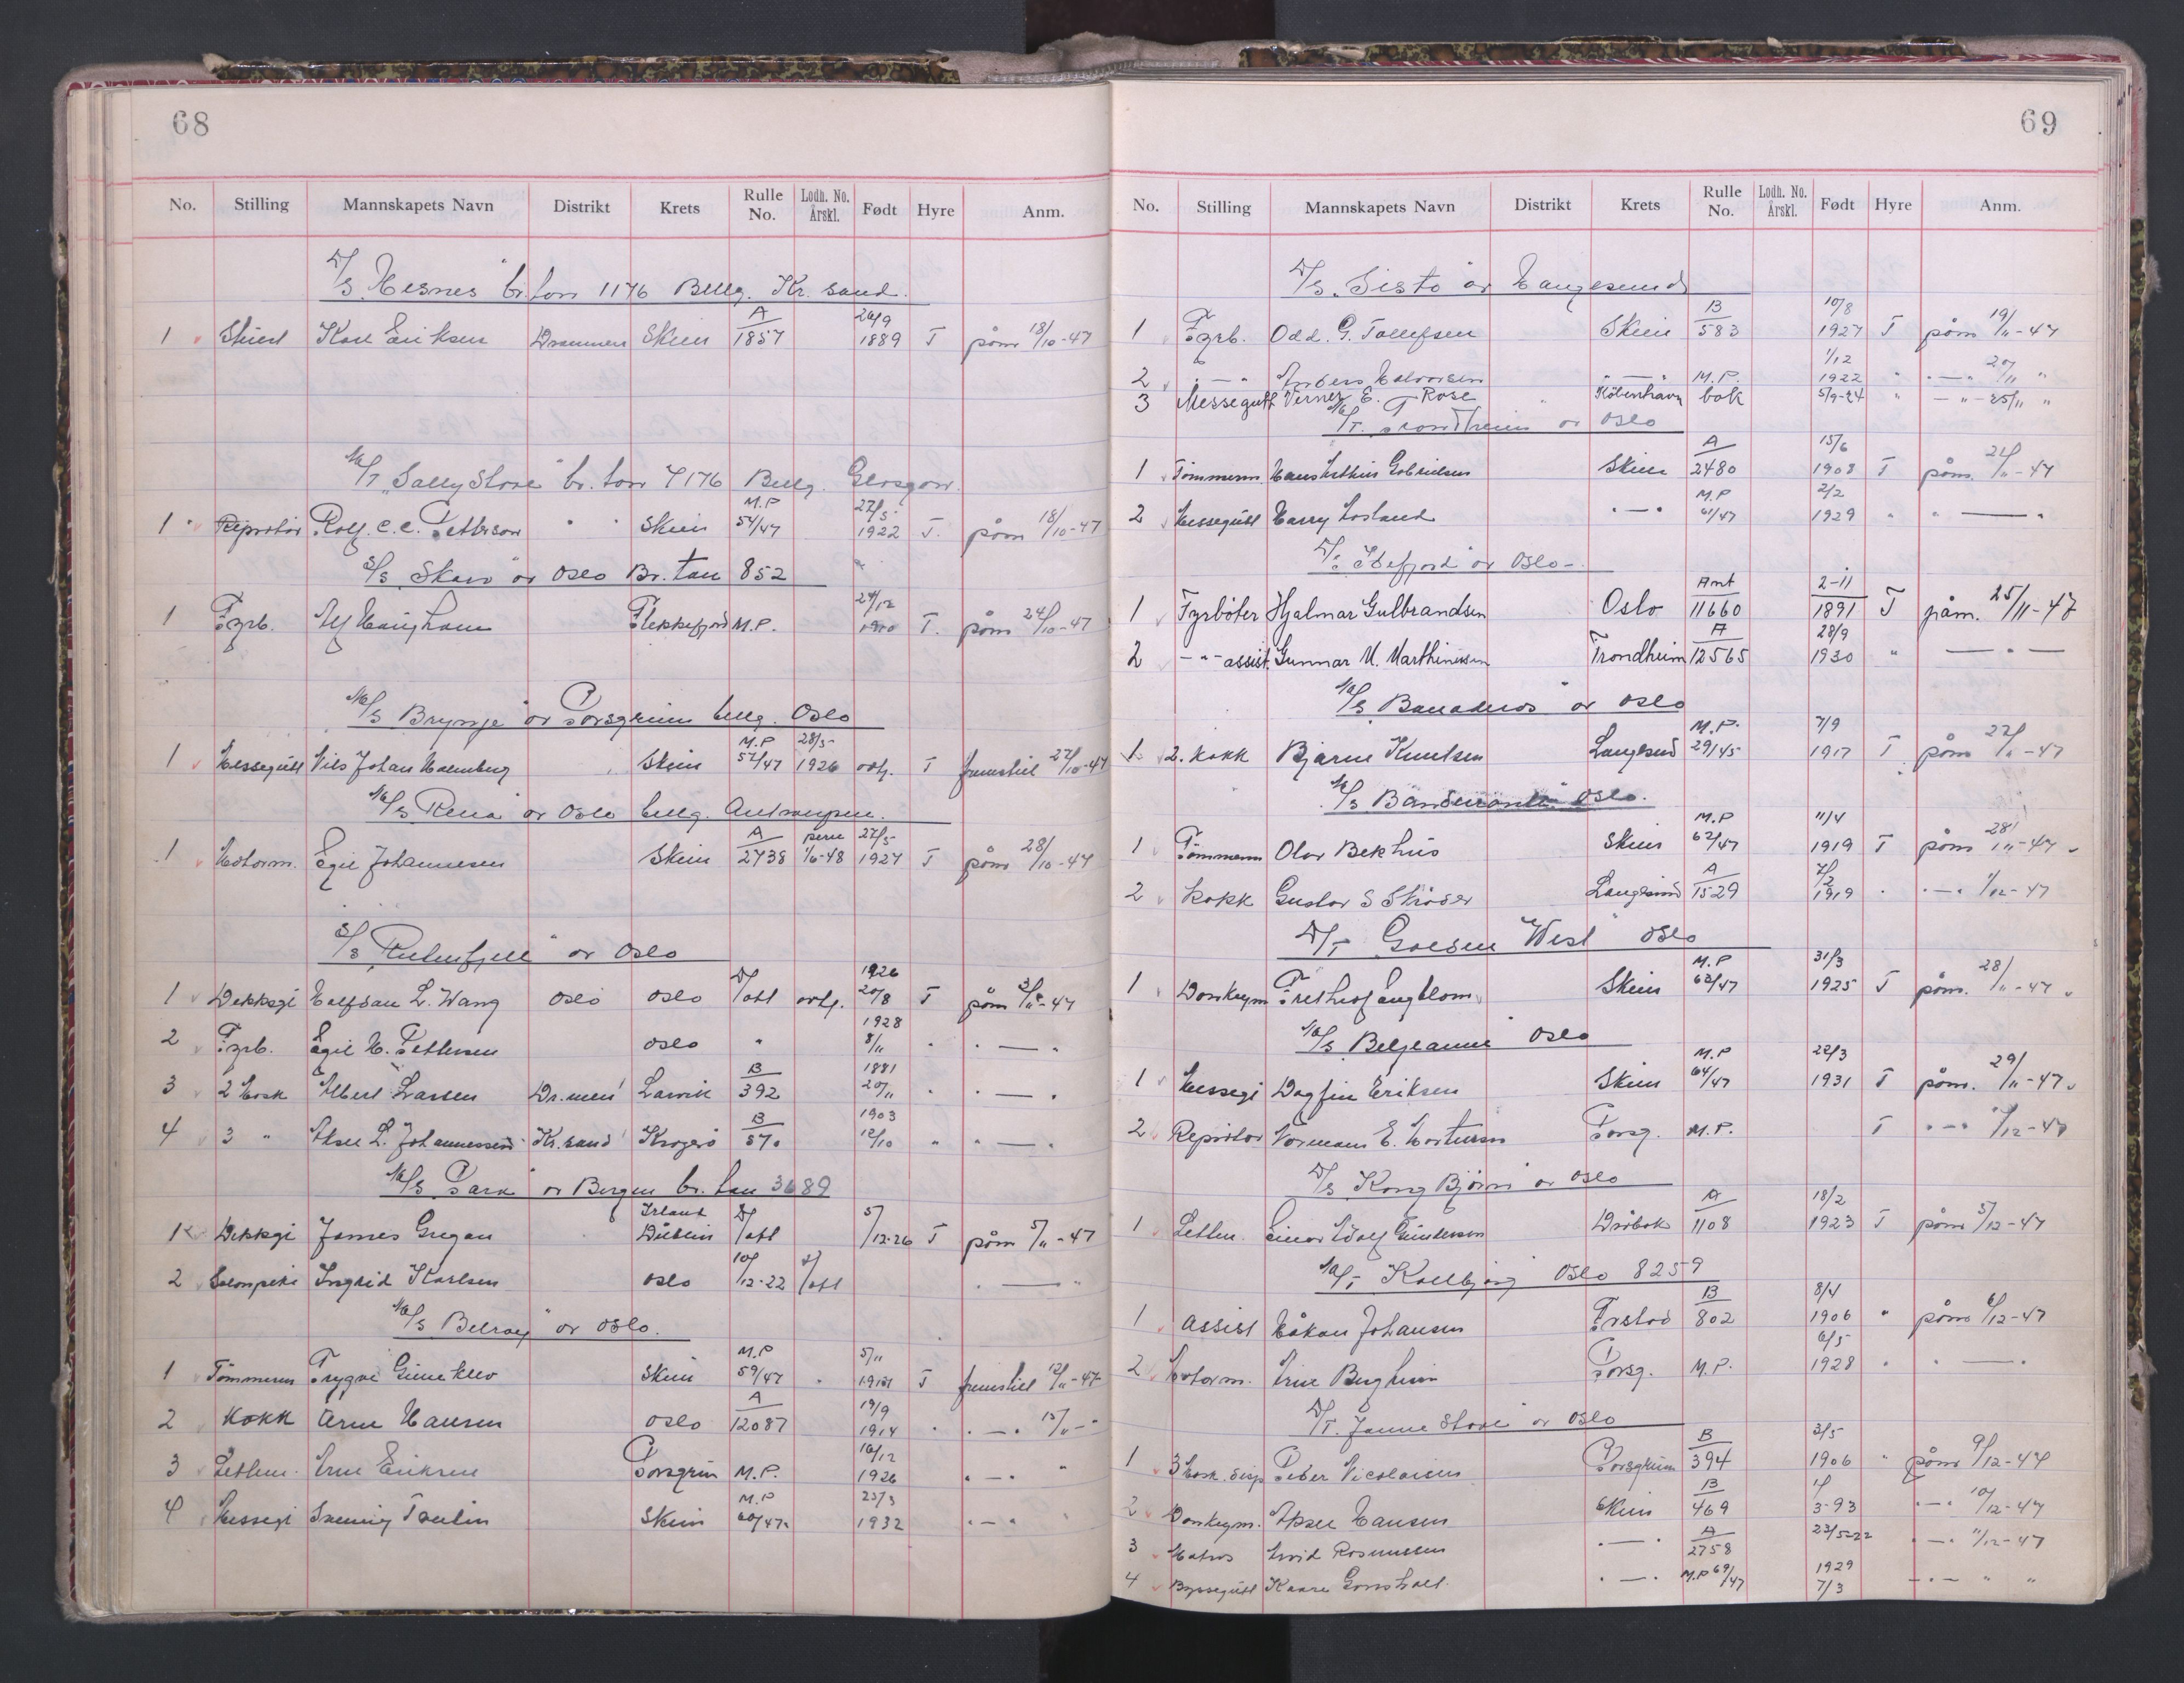 68
No. Stilling Mannskapets Navn Distrikt Krets Rulle No. Lodh. No. Årskl. Født Hyre Anm.
D/S "Hesnes" br. ton 1176 Bellg. Kr. sand.
1 Stuert Karl Eriksen Drammen Skien A/1857 26/9 1889 T påm 18/10-47
M/T "Sally Stove" br. ton 7176 Bellg. Glasgow.
1 Repratør Rolf. C. C. Petterson " " Skien M.P 54/47 22/5 1922 T. påm 18/10-47
S/S "Skard" av Oslo Br. ton 852
1 Fyrb. Alf Haugland Flekkefjord M.P. 24/12 1910 T. påm 24/10-47
M/S "Brynje" av Porsgrunn bellg. Oslo
1 Messegutt Nils Johan Holmberg Skien M.P 57/47 28/5 1926 ovf. T fremstill 27/10-47
M/S "Rena" av Oslo bellg. Antwerpen.
1 Motorm. Egil Johannesen Skien A/2738 perm 1/6-48 27/5 1927 T påm 28/10-47
S/S "Rutenfjell" av Oslo
1 Dekksgt Halfdan L. Wang Oslo Oslo D/att ovf. 1926 20/8 T påm 3/11-47
2 Fyrb. Egil H. Pettersen Oslo " 1928 8/11 " " — "
3 2 Mask Albert Larsen Dr.men Larvik B/392 1881 20/11 " " — "
4 3 " Aksel L. Johannessen Kr.sand Kragerø B/570 1903 12/10 " " — "
M/S "Park" av Bergen br. ton 3689
1 Dekksgt James Gregan Irland Dublin D/att 5/12-26 T påm 5/11-47
2 Salonpike Ingrid Karlsen Oslo 10/12-22 D/att " — "
M/S "Belray" av Oslo.
1 Tømmerm Trygve Gimeklev Skien M.P 59/47 5/11 T fremstill 12/11-47
2 Kokk Arne Hansen Oslo A/12087 19/9 1914 " " — " 13/11 - "
3 Lettm. Arne Eriksen Porsgrun M.P. 16/12 1926 " — " "
4 Messegt Svenning Taulin Skien M.P 60/47 23/3 1932 " — " "
69
No. Stilling Mannskapets Navn Distrikt Krets Rulle No. Lodh. No. Årskl. Født Hyre Anm.
D/S "Sisto" av Haugesund
1 Fyrb. Odd. G. Tollefsen Skien B/583 10/8 1927 T påm 19/11-47
2 " — " Anders Halvorsen " — " M.P. 1/12 1922 " " — " 20/11 "
3 Messegutt Verner E. Rose København bok 5/9-24 " - " - 25/11 "
M/T. Trondheim av Oslo
1 Tømmerm Hans Arthur Gabrielsen Skien A/2480 15/6 1908 T påm. 21/11-47
2 Messegutt Harry Losland " — " M.P 61/47 2/2 1929 " " — "
D/S "Idefjord" av Oslo-
1 Fyrbøter Hjalmar Gulbrandsen Oslo Amt 11660 2-11 1891 T påm. 25/11-47
2 -"- assist. Gunnar M. Marthinsen Trondheim A/12565 28/9 1930 " — " —
M/S "Banaderos" av Oslo
1 2. kokk Bjarne Knutsen Langesund M.P. 29/45 7/9 1917 T påm 27/11-47
M/S "Bandeirante" Oslo.
1 Tømmerm Olav Bekhus Skien M.P 62/47 11/4 1919 T påm 28/11-47
2 Kokk Gustav S Strøder Langesund A/1529 7/2 1919 " " — " 1/12-47
D/T "Golden West" Oslo
1 Donkeym Frithjof Engblom Skien M.P 63/47 31/3 1925 T påm. 28/11-47
M/S "Beljeanne" Oslo
1 Messegt Dagfin Eriksen Skien M.P 64/47 22/3 1931 T påm. 29/11-47
2 Repratør Normann E. Mortensen Porsg. M.P. T " — " 1/12-47
D/S "Kong Bjørn" av Oslo
1 Lettm. Einar Adolf Gundersen Drøbak A/1108 18/2 1923 T påm 5/12-47
M/T "Kollbjørg" Oslo 8259
1 Assist Håkon Johansen Ørstad B/802 8/4 1906 " påm 6/12-47
2 Motorm. Arne Bergheim Porsg. M.P. 6/5 1928 " " — "
D/T. "Janne Stove" av Oslo
1 3 Mask. disp Peder Nicolaisen Porsgrunn B/394 3/5 1906 " påm 9/12-47
2 Donkeym. Aksel Hansen Skien B/469 3-93 " — " 10/12-47
3 Matros Arvid Rasmussen " — " A/2758 23/5-22 " — " 11/12-47
4 Byssegutt Kaare Gonsholt. " — " M.P 69/47 1929 7/3 - " - " "